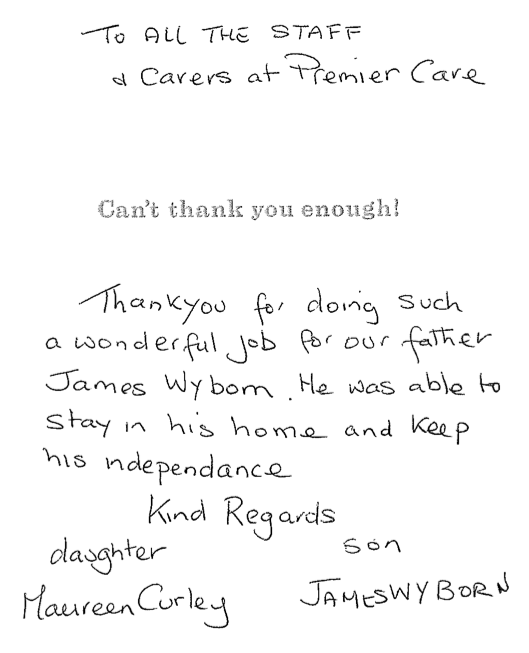 To ALL THE STAFF
& Carers at Premier Care
Can't thank you enough!
Thankyou for doing such
a wonderful job for our father
James Wyborn. He was able to
stay in his home and keep
his independance
Kind Regards
daughter son
Maureen Curley JAMES WYBORN